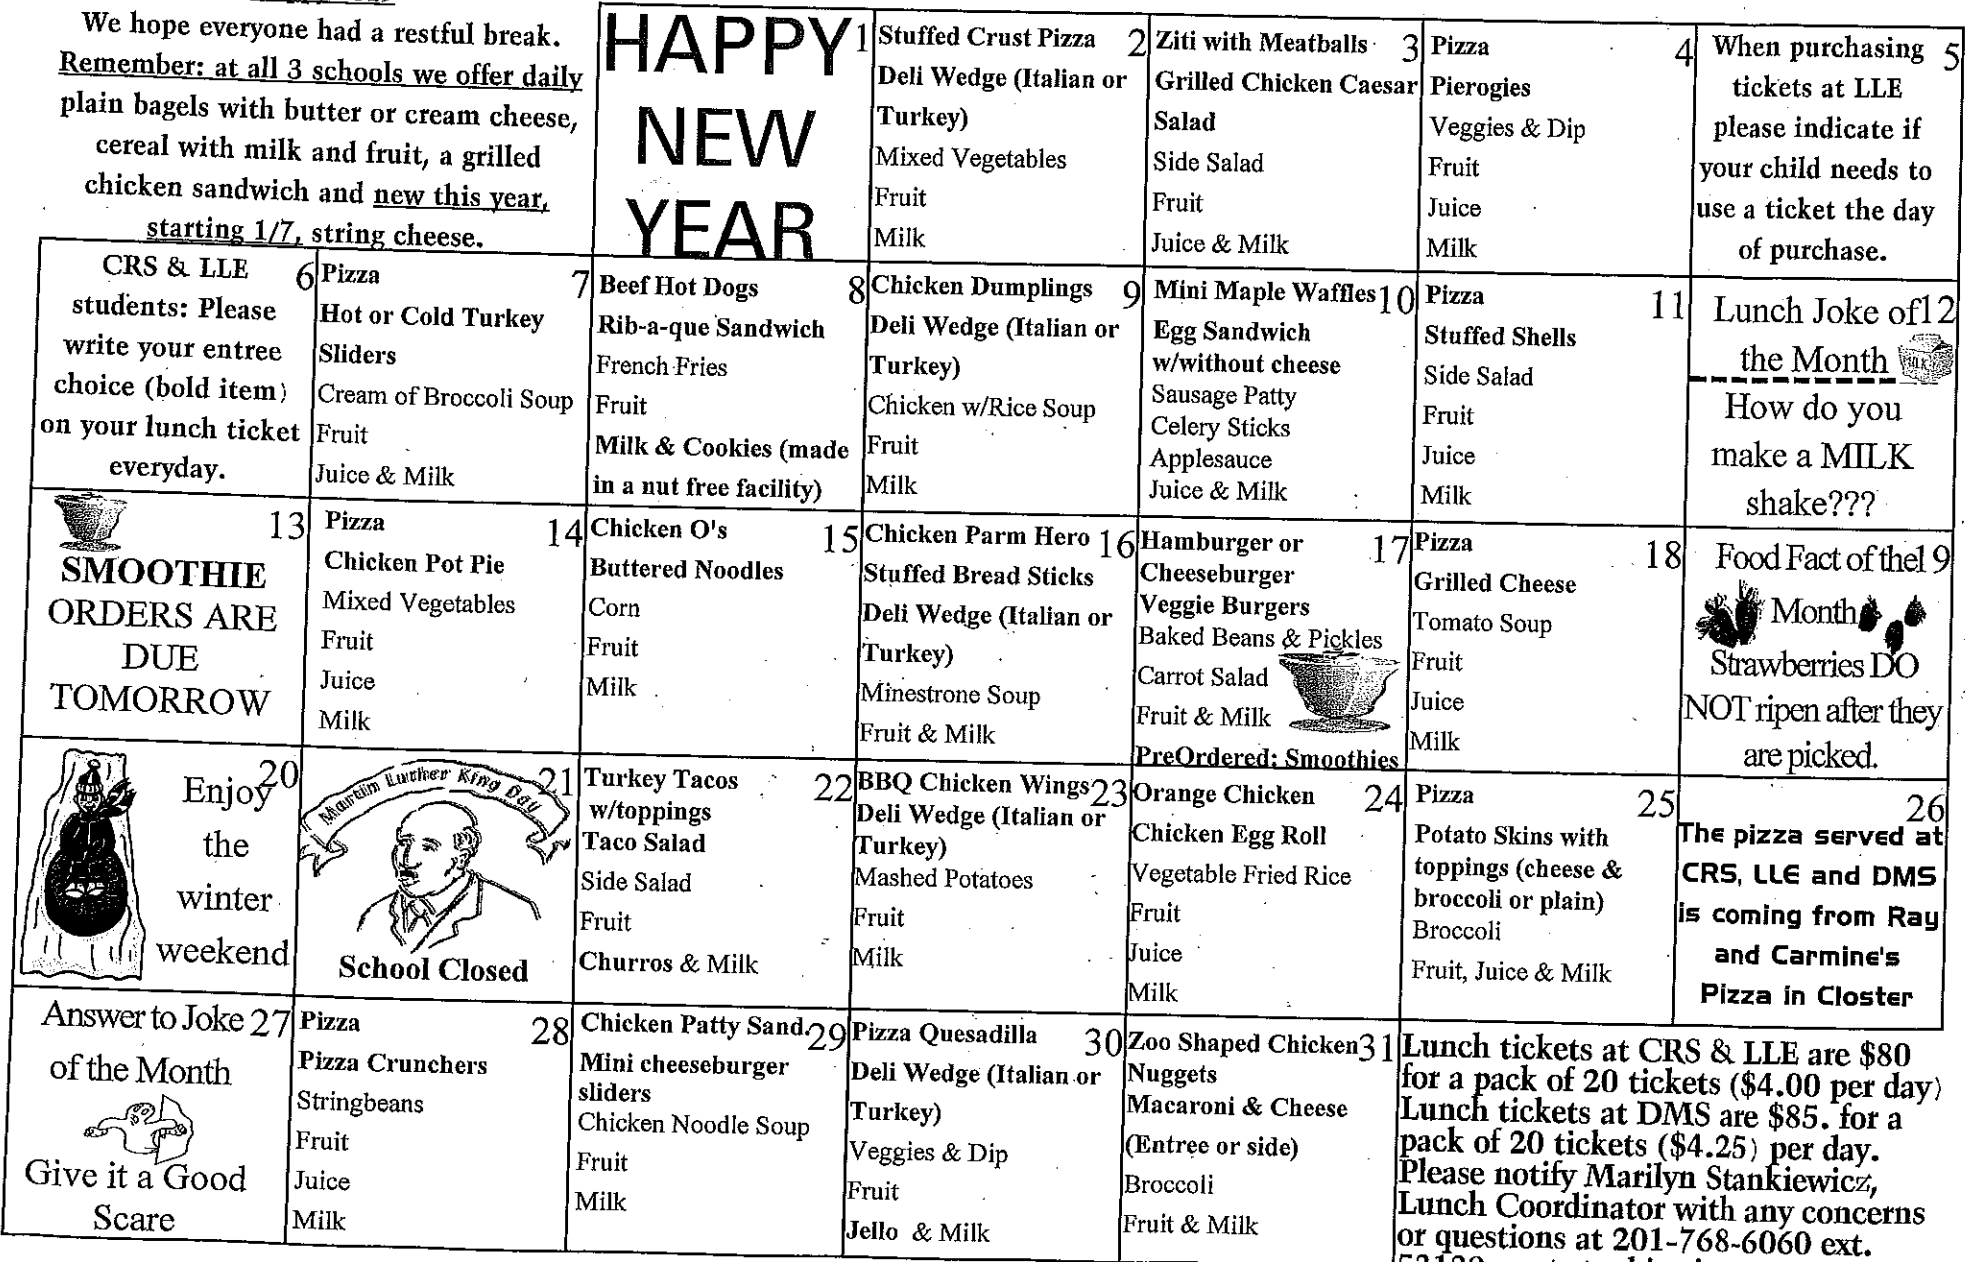 We hope everyone had a restful break.
Remember: at all 3 schools we offer daily
plain bagels with butter or cream cheese,
cereal with milk and fruit, a grilled
chicken sandwich and new this year,
starting 1/7, string cheese.
HAPPY 1
NEW
YEAR
Stuffed Crust Pizza 2
Deli Wedge (Italian or
Turkey)
Mixed Vegetables
Fruit
Milk
Ziti with Meatballs 3
Grilled Chicken Caesar
Salad
Side Salad
Fruit
Juice & Milk
Pizza 4
Pierogies
Veggies & Dip
Fruit
Juice
Milk
When purchasing 5
tickets at LLE
please indicate if
your child needs to
use a ticket the day
of purchase.
CRS & LLE 6
students: Please
write your entree
choice (bold item)
on your lunch ticket
everyday.
Pizza 7
Hot or Cold Turkey
Sliders
Cream of Broccoli Soup
Fruit
Juice & Milk
Beef Hot Dogs 8
Rib-a-que Sandwich
French Fries
Fruit
Milk & Cookies (made
in a nut free facility)
Chicken Dumplings 9
Deli Wedge (Italian or
Turkey)
Chicken w/Rice Soup
Fruit
Milk
Mini Maple Waffles 10
Egg Sandwich
w/without cheese
Sausage Patty
Celery Sticks
Applesauce
Juice & Milk
Pizza 11
Stuffed Shells
Side Salad
Fruit
Juice
Milk
Lunch Joke of 12
the Month
How do you
make a MILK
shake???
13
SMOOTHIE
ORDERS ARE
DUE
TOMORROW
Pizza 14
Chicken Pot Pie
Mixed Vegetables
Fruit
Juice
Milk
Chicken O's 15
Buttered Noodles
Corn
Fruit
Milk
Chicken Parm Hero 16
Stuffed Bread Sticks
Deli Wedge (Italian or
Turkey)
Minestrone Soup
Fruit & Milk
Hamburger or 17
Cheeseburger
Veggie Burgers
Baked Beans & Pickles
Carrot Salad
Fruit & Milk
PreOrdered: Smoothies
Pizza 18
Grilled Cheese
Tomato Soup
Fruit
Juice
Milk
Food Fact of the 19
Month
Strawberries DO
NOT ripen after they
are picked.
Enjoy 20
the
winter
weekend
Martin Luther King Day 21
School Closed
Turkey Tacos 22
w/toppings
Taco Salad
Side Salad
Fruit
Churros & Milk
BBQ Chicken Wings 23
Deli Wedge (Italian or
Turkey)
Mashed Potatoes
Fruit
Milk
Orange Chicken 24
Chicken Egg Roll
Vegetable Fried Rice
Fruit
Juice
Milk
Pizza 25
Potato Skins with
toppings (cheese &
broccoli or plain)
Broccoli
Fruit, Juice & Milk
26
The pizza served at
CRS, LLE and DMS
is coming from Ray
and Carmine's
Pizza in Closter
Answer to Joke 27
of the Month
Give it a Good
Scare
Pizza 28
Pizza Crunchers
Stringbeans
Fruit
Juice
Milk
Chicken Patty Sand. 29
Mini cheeseburger
sliders
Chicken Noodle Soup
Fruit
Milk
Pizza Quesadilla 30
Deli Wedge (Italian or
Turkey)
Veggies & Dip
Fruit
Jello & Milk
Zoo Shaped Chicken 31
Nuggets
Macaroni & Cheese
(Entree or side)
Broccoli
Fruit & Milk
Lunch tickets at CRS & LLE are $80
for a pack of 20 tickets ($4.00 per day)
Lunch tickets at DMS are $85. for a
pack of 20 tickets ($4.25) per day.
Please notify Marilyn Stankiewicz,
Lunch Coordinator with any concerns
or questions at 201-768-6060 ext.